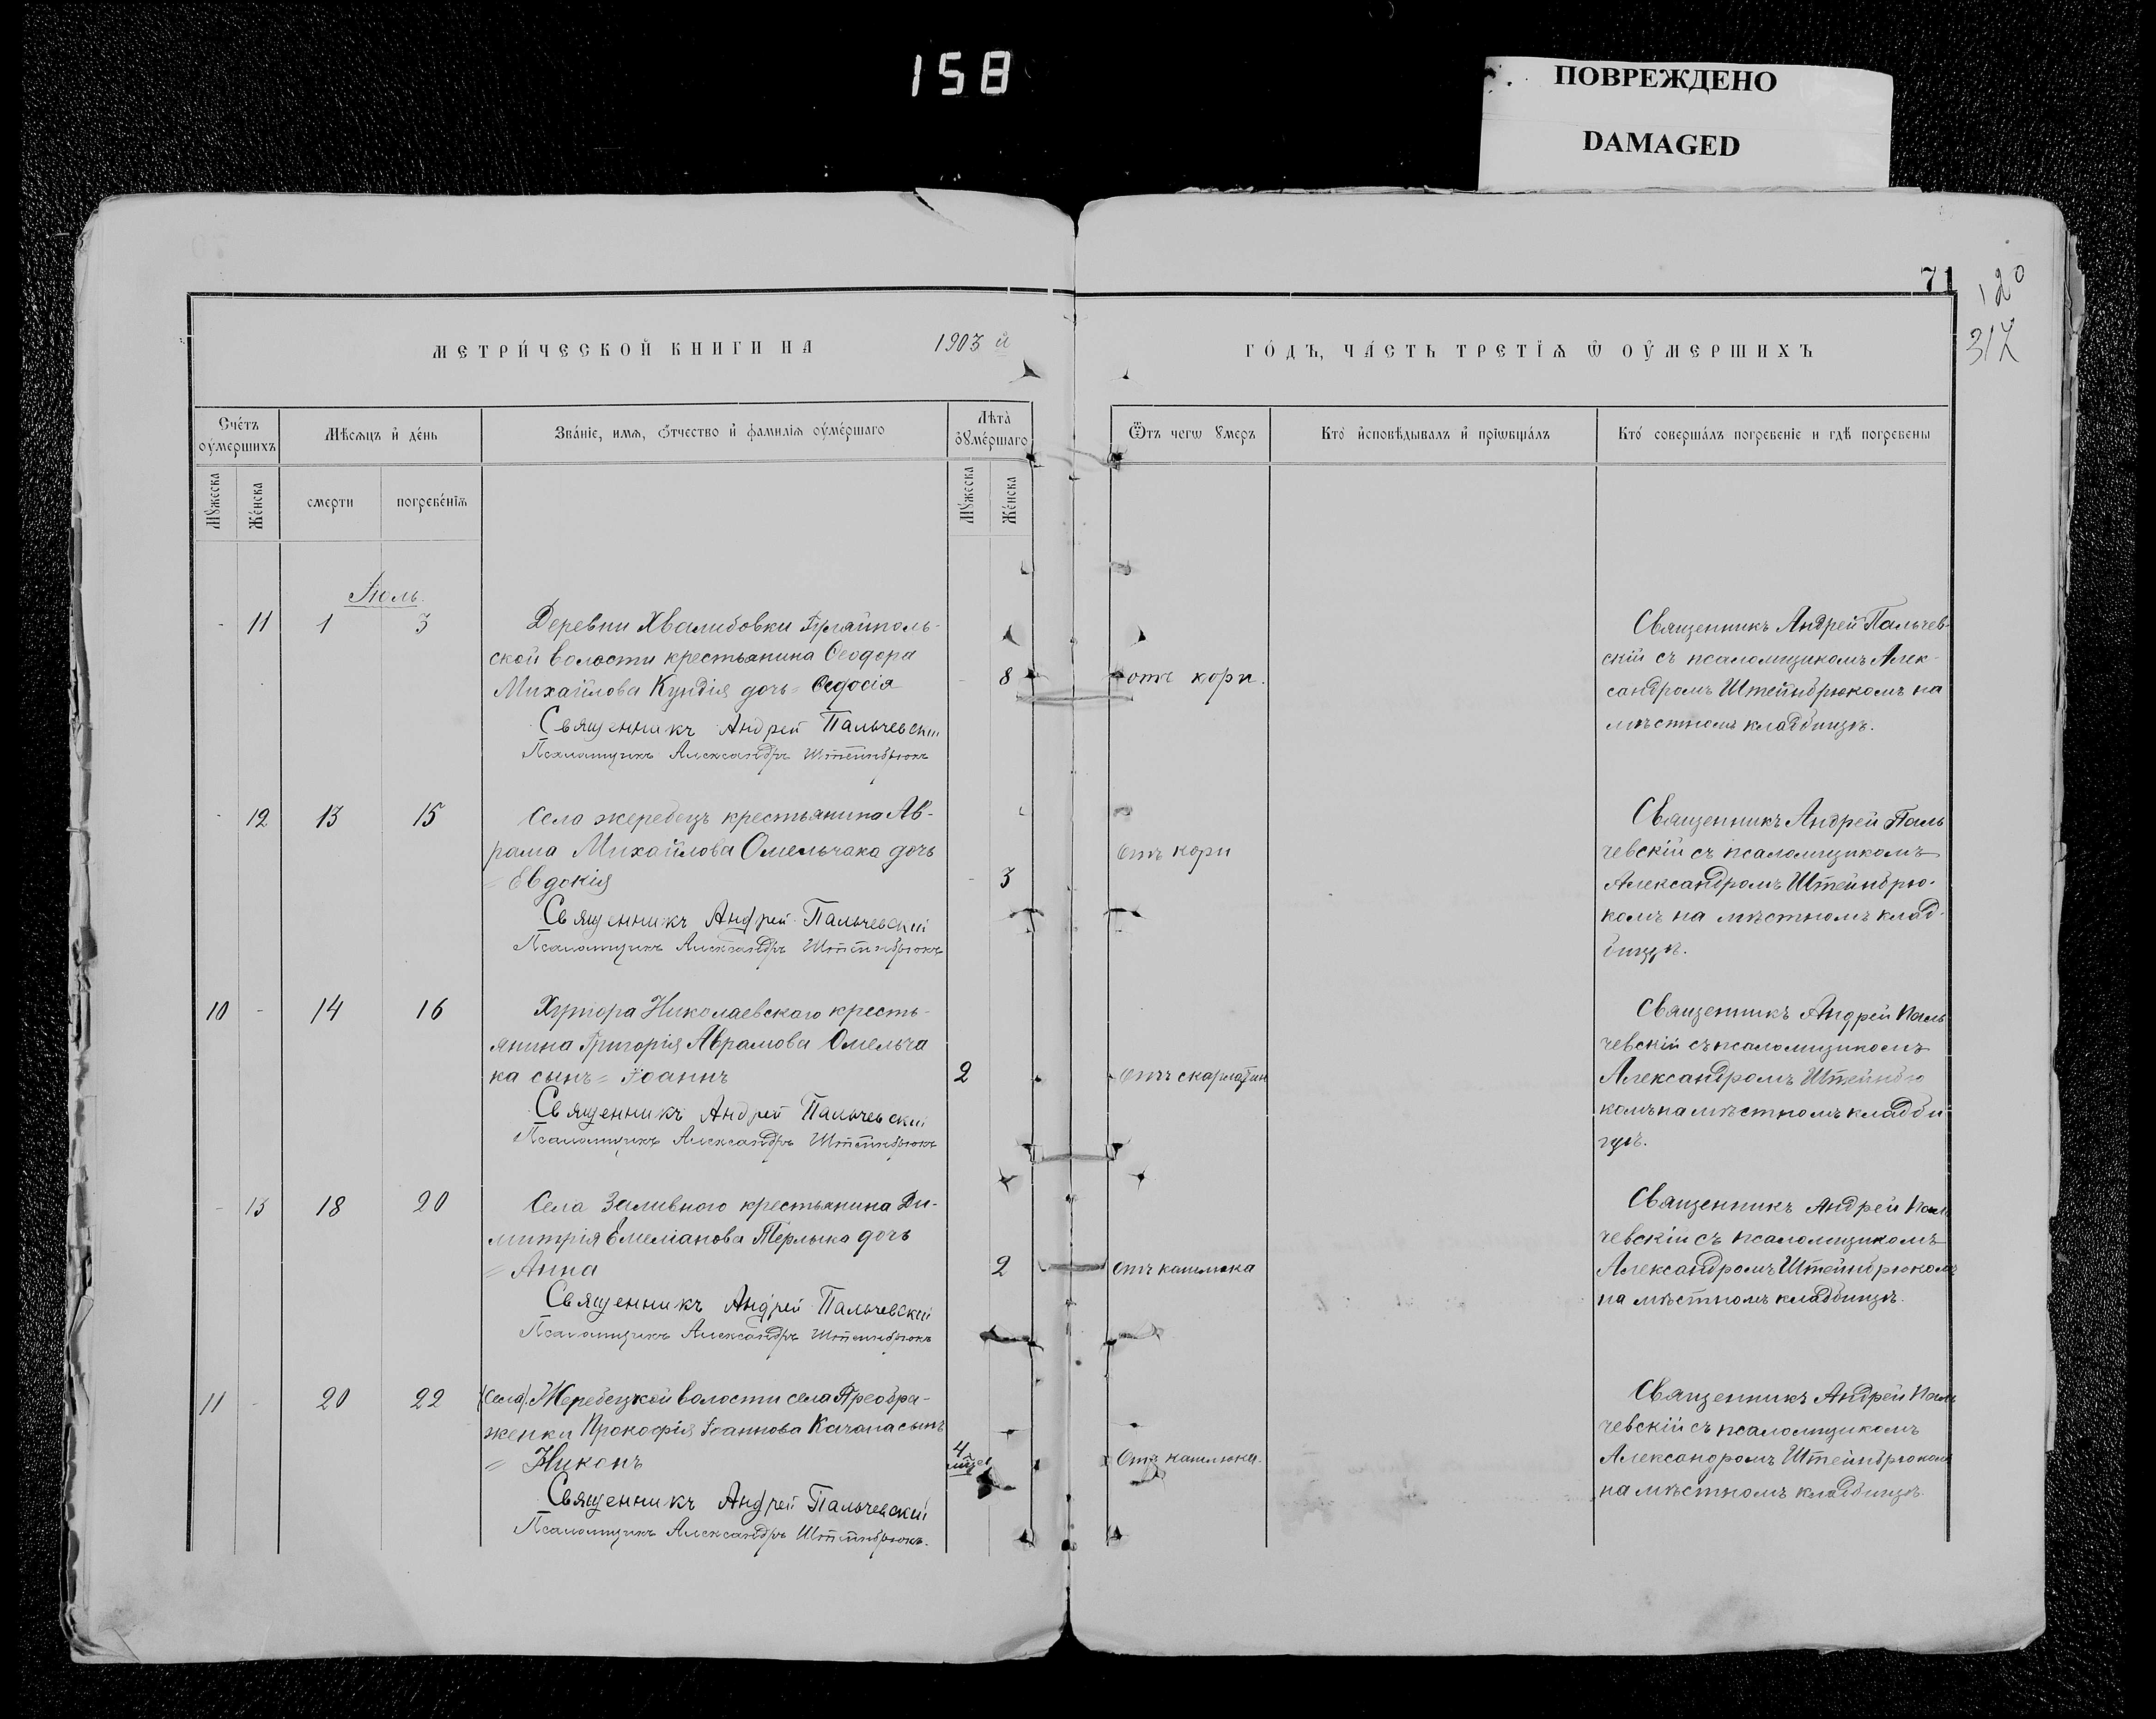 158
ПОВРЕЖДЕНО
DAMAGED
71
120
317
МЕТРИ́ЧЕСКОЙ КНИГИ НА 1903 й
ГО́ДЪ, ЧА́СТЬ ТРЕТІѦ Ѡ ОУ҆МЕРШИХЪ
Сче́тъ оу҆ме́ршихъ
Мѣсѧцъ и҆ де́нь
Зва́ніе, имѧ, ѿчество и҆ фамиліѧ оу҆ме́ршаго
Лѣта̀ оу҆ме́ршаго
Ѿтъ чегѡ ᲂумеръ
Кто̀ и҆сповѣ́дывалъ и҆ прїѡбща́лъ
Кто̀ соверша́лъ погребе́ніе и гдѣ̀ погребены
Мꙋжеска
Же́нска
смерти
погребе́нїѧ
Мꙋжеска
Же́нска
Іюль.
- 11 1 3 Деревни Хвалибовки Гуляйполь-
ской волости крестьянина Ѳеодора
Михайлова Кундія дочь = Ѳедосія
- 8 отъ кори.
Священникъ Андрей Пальчевскій
Псаломщикъ Александръ Штейнбрюкъ
Священникъ Андрей Пальчев-
скій съ псаломщикомъ Алек-
сандромъ Штейнбрюкомъ на
мѣстномъ кладбищѣ.
- 12 13 15 Села жеребецъ крестьянина Ав-
рама Михайлова Омельчака дочь
= Евдокія
- 3 Отъ кори
Священникъ Андрей Пальчевскій
Псаломщикъ Александръ Штейнбрюкъ
Священникъ Андрей Паль
чевскій съ псаломщикомъ
Александромъ Штейнбрю-
комъ на мѣстномъ клад-
бищѣ.
10 - 14 16 Хутора Николаевского кресть-
янина Григорія Аврамова Омельча
ка сынъ = Іоаннъ
2 Отъ скарлатин
Священникъ Андрей Пальчевскій
Псаломщикъ Александръ Штейнбрюкъ
Священникъ Андрей Паль
чевскій съ псаломщикомъ
Александромъ Штейнбрю
комъ на мѣстномъ кладби
щѣ.
- 13 18 20 Села Заливного крестьянина Ди-
митрія Емеліанова Терлыка дочь
= Анна
2 Отъ кашлюка
Священникъ Андрей Пальчевскій
Псаломщикъ Александръ Штейнбрюкъ
Священникъ Андрей Паль
чевскій съ псаломщикомъ
Александромъ Штейнбрюкомъ
на мѣстномъ кладбищѣ.
11 - 20 22 (Села) Жеребецкой волости села Преобра-
женки Прокофія Іоаннова Качана сынъ
= Никонъ
4 мѣс Отъ кашлюка.
Священникъ Андрей Пальчевскій
Псаломщикъ Александръ Штейнбрюкъ.
Священникъ Андрей Паль
чевскій съ псаломщикомъ
Александромъ Штейнбрюкомъ
на мѣстномъ кладбищѣ.